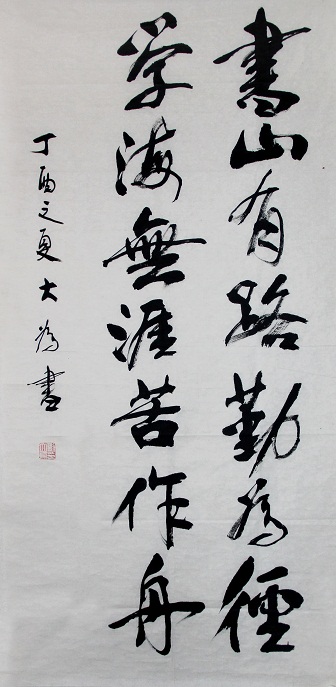 書山有路勤為徑
学海無涯苦作舟
丁酉之夏大為書